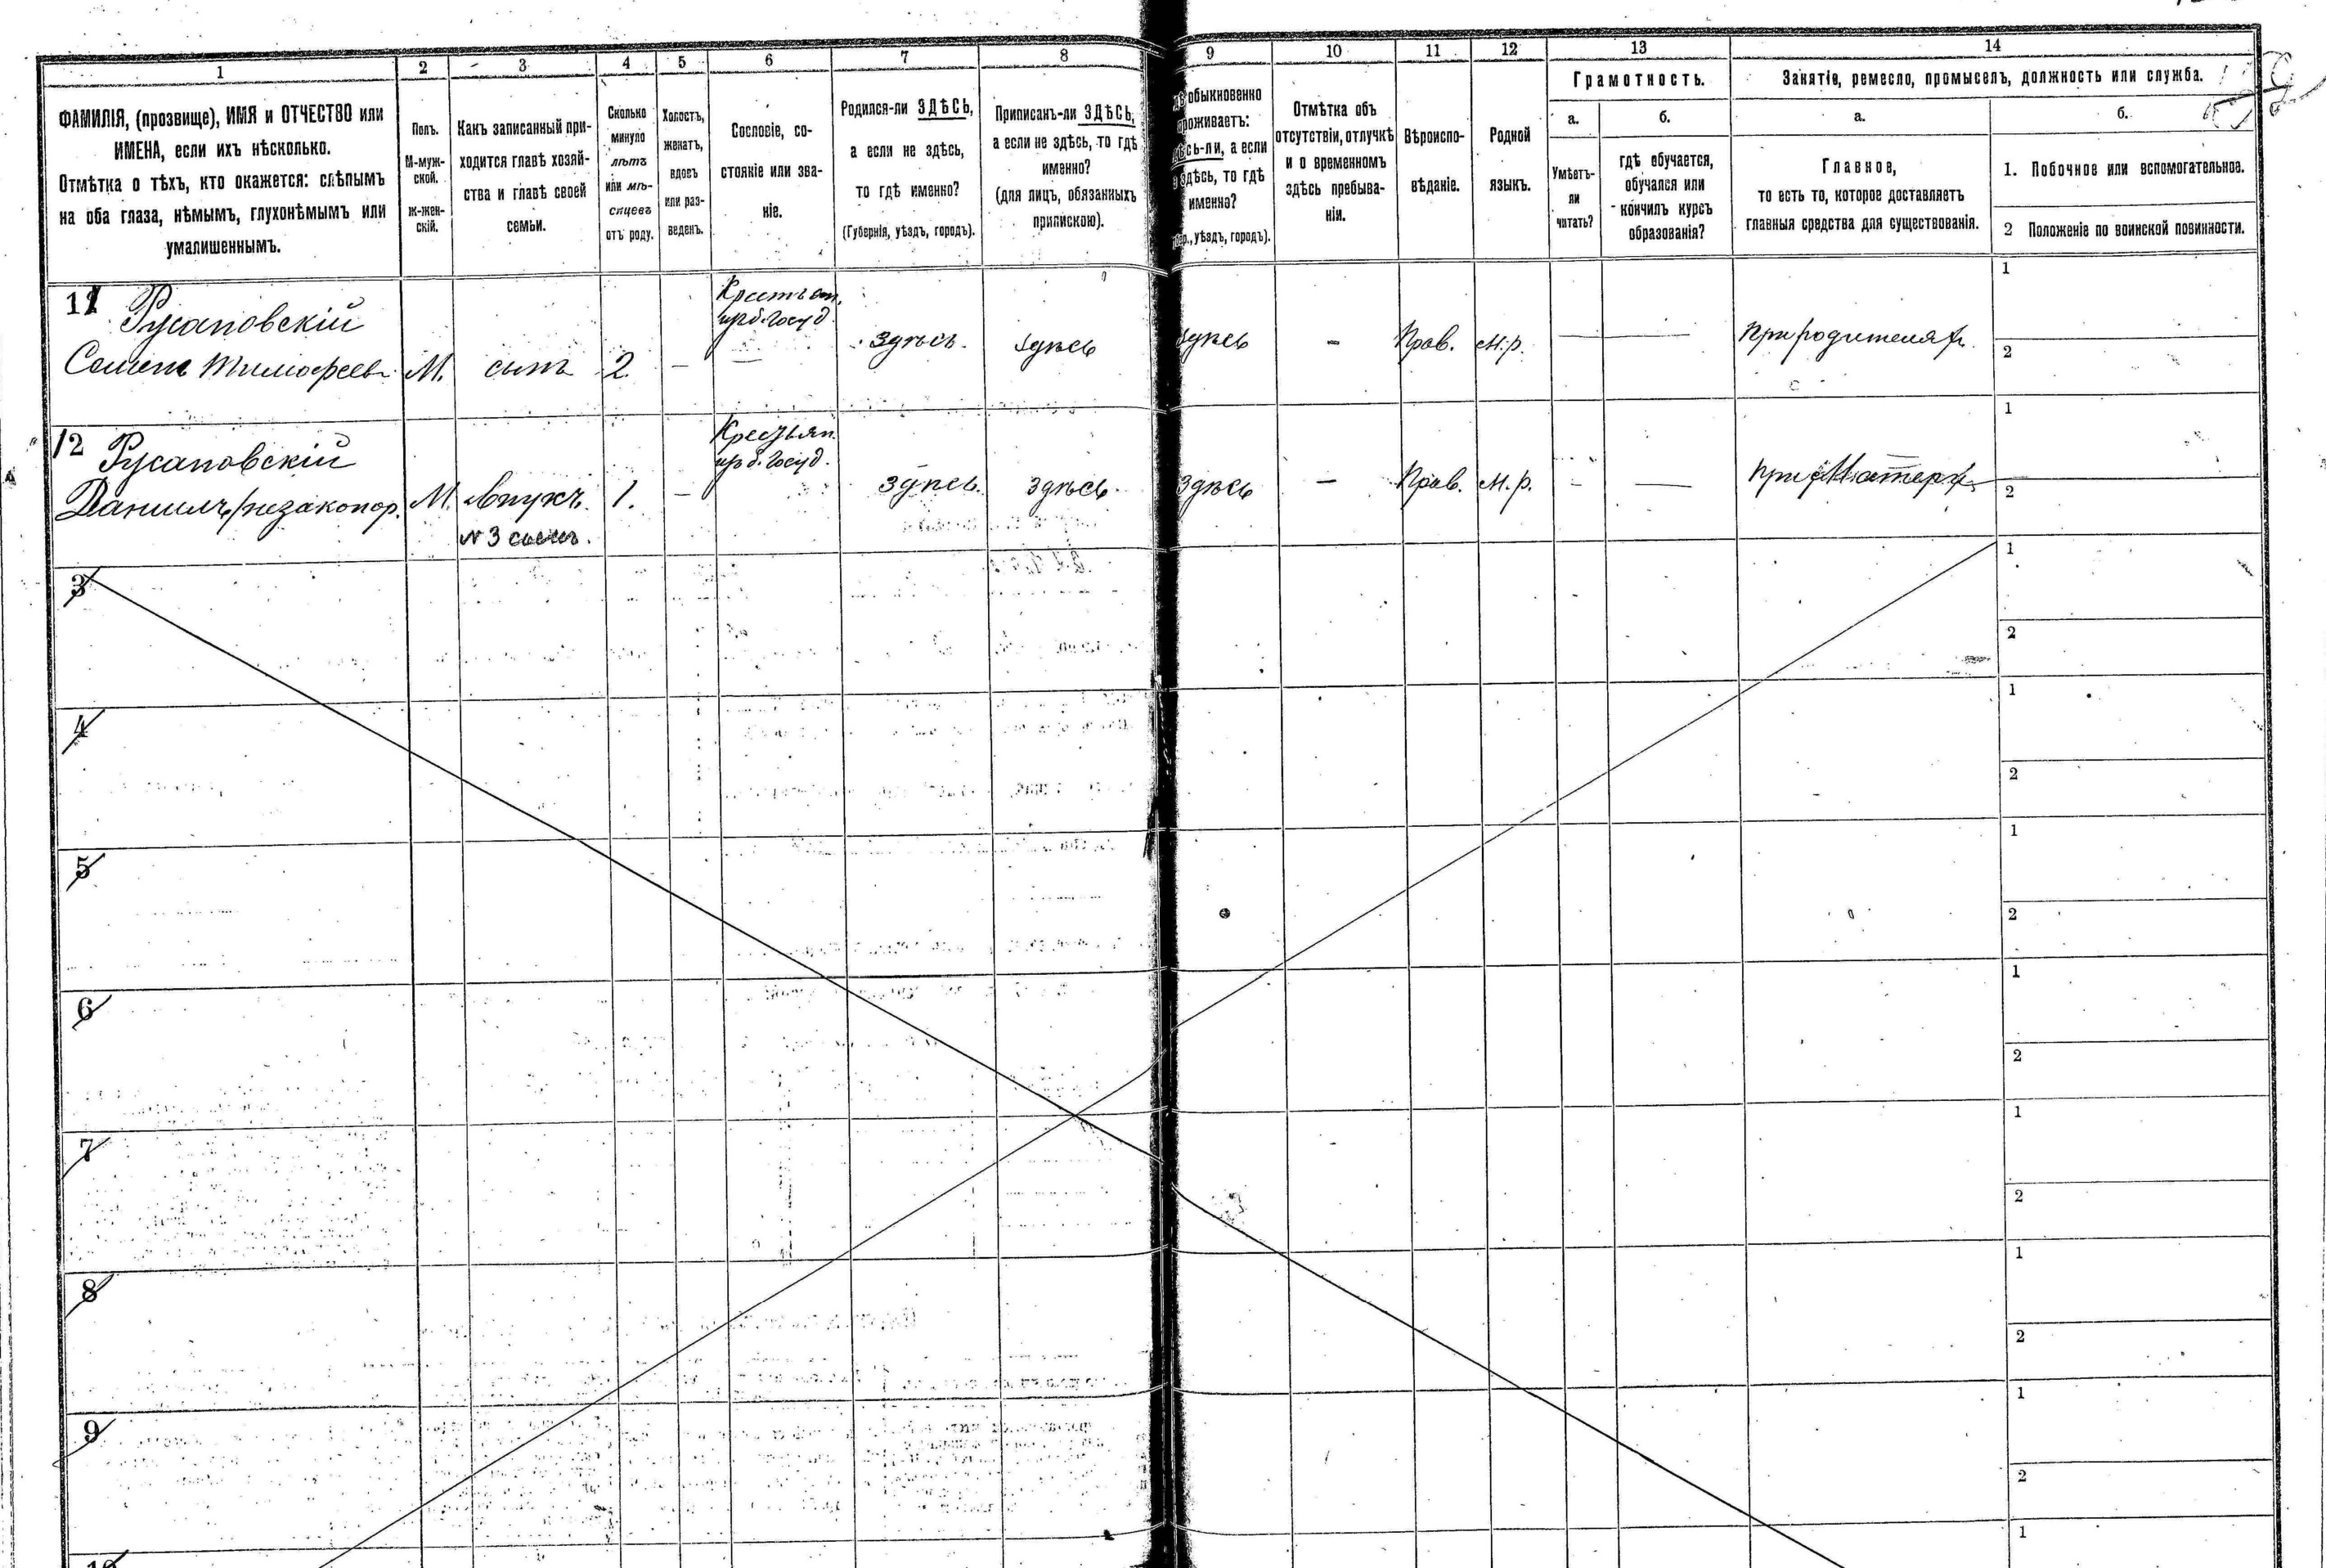 1
2
3
4
5
6
7
8
9
10
11
12
13
14
ФАМИЛІЯ, (прозвище), ИМЯ и ОТЧЕСТВО или
ИМЕНА, если ихъ нѣсколько.
Отмѣтка о тѣхъ, кто окажется: слѣпымъ
на оба глаза, нѣмымъ, глухонѣмымъ или
умалишеннымъ.
Полъ.
М-муж-
ской.
Ж-жен-
скій.
Какъ записанный при-
ходится главѣ хозяй-
ства и главѣ своей
семьи.
Сколько
минуло
лѣтъ
или мѣ-
сяцевъ
отъ роду.
Холостъ,
женатъ,
вдовъ
или раз-
веденъ.
Сословіе, со-
стояніе или зва-
ніе.
Родился-ли ЗДѢСЬ,
а если не здѣсь,
то гдѣ именно?
(Губернія, уѣздъ, городъ).
Приписанъ-ли ЗДѢСЬ,
а если не здѣсь, то гдѣ
именно?
(для лицъ, обязанныхъ
припискою).
обыкновенно
проживаетъ:
здѣсь-ли, а если
не здѣсь, то гдѣ
именно?
уѣздъ, городъ).
Отмѣтка объ
отсутствіи, отлучкѣ
и о временномъ
здѣсь пребыва-
ніи.
Вѣроиспо-
вѣданіе.
Родной
языкъ.
Грамотность.
а.
Умѣетъ-
ли
читать?
б.
гдѣ обучается,
обучался или
кончилъ курсъ
образованія?
Занятіе, ремесло, промыселъ, должность или служба.
а.
Главное,
то есть то, которое доставляетъ
главныя средства для существованія.
б.
1. Побочное или вспомогательное.
2 Положеніе по воинской повинности.
11 Русановскій
Семенъ Тимофеев.
М.
сынъ
2
—
Крестьян.
изъ б. Госуд.
здѣсь.
здѣсь
здѣсь
—
Прав.
м.р.
—
—
при родителях
1
2
12 Русановскій
Даниилъ/незаконор.
М.
внукъ
№ 3 сынъ.
1.
—
Крестьян.
изъ б. Госуд.
здѣсь.
здѣсь.
здѣсь
—
Прав.
м.р.
—
—
при Матери
1
2
3
1
2
4
1
2
5
1
2
6
1
2
7
1
2
8
1
2
9
1
2
10
1